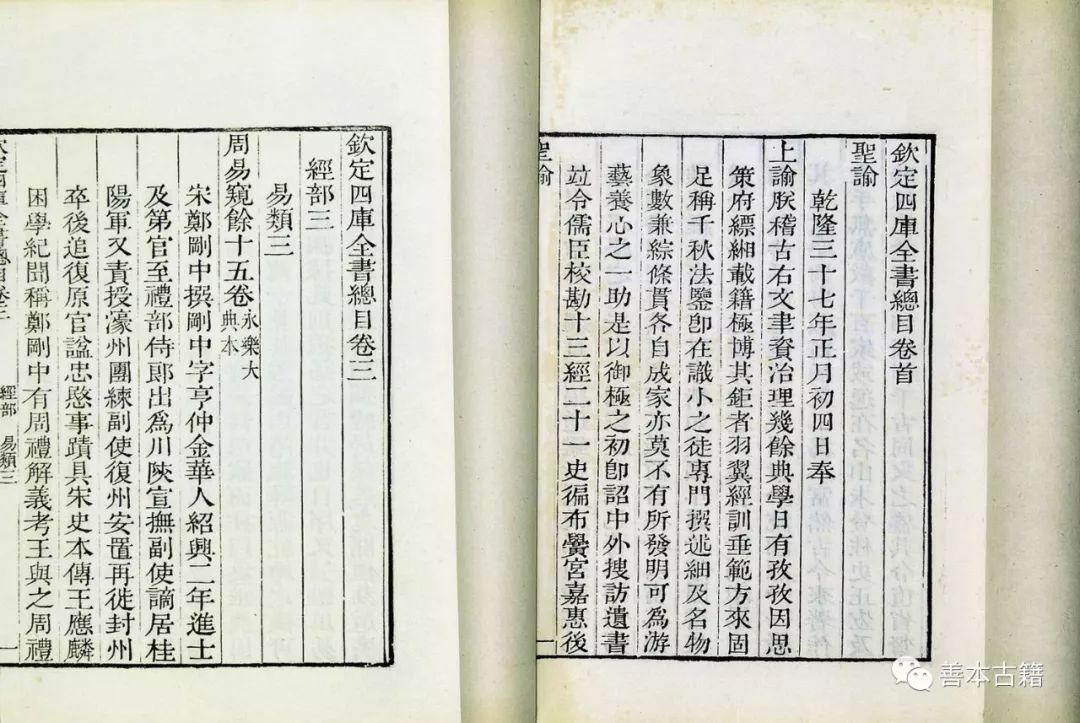 欽定四庫全書總目卷首
聖諭
乾隆三十七年正月初四日奉
上諭朕稽古右文聿資治理幾餘典學日有孜孜因思
策府縹緗載籍極博其鉅者羽翼經訓垂範方來固
足稱千秋法鑒卽在識小之徒專門撰述細及名物
象數兼綜條貫各自成家亦莫不有所發明可爲游
藝養心之一助是以御極之初卽詔中外搜訪遺書
竝令儒臣校勘十三經二十一史徧布黌宮嘉惠後
聖諭
一
欽定四庫全書總目卷三
經部三
易類三
周易窺餘十五卷永樂大典本
宋鄭剛中撰剛中字亨仲金華人紹興二年進士
及第官至禮部侍郞出爲川陜宣撫副使謫居桂
陽軍又責授濠州團練副使復州安置再徙封州
卒後追復原官諡忠愍事蹟具宋史本傳王應麟
困學紀聞稱鄭剛中有周禮解義考王與之周禮
欽定四庫全書總目卷三
經部 易類三
一
善本古籍